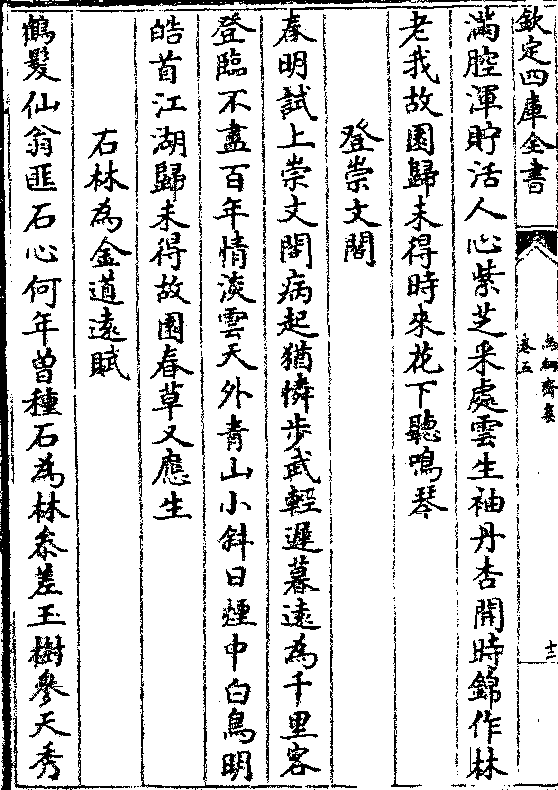 欽定四庫全書
尚絅齋集
卷五
滿腔渾貯活人心紫芝采處雲生袖丹杏開時錦作林
老我故園歸未得時來花下聽鳴琴
登崇文閣
春明試上崇文閣病起猶憐步武輕遲暮遠為千里客
登臨不盡百年情淡雲天外青山小斜日煙中白鳥明
皓首江湖歸未得故園春草又應生
石林為金道遠賦
鶴髮仙翁匪石心何年曽種石為林叅差玉樹參天秀